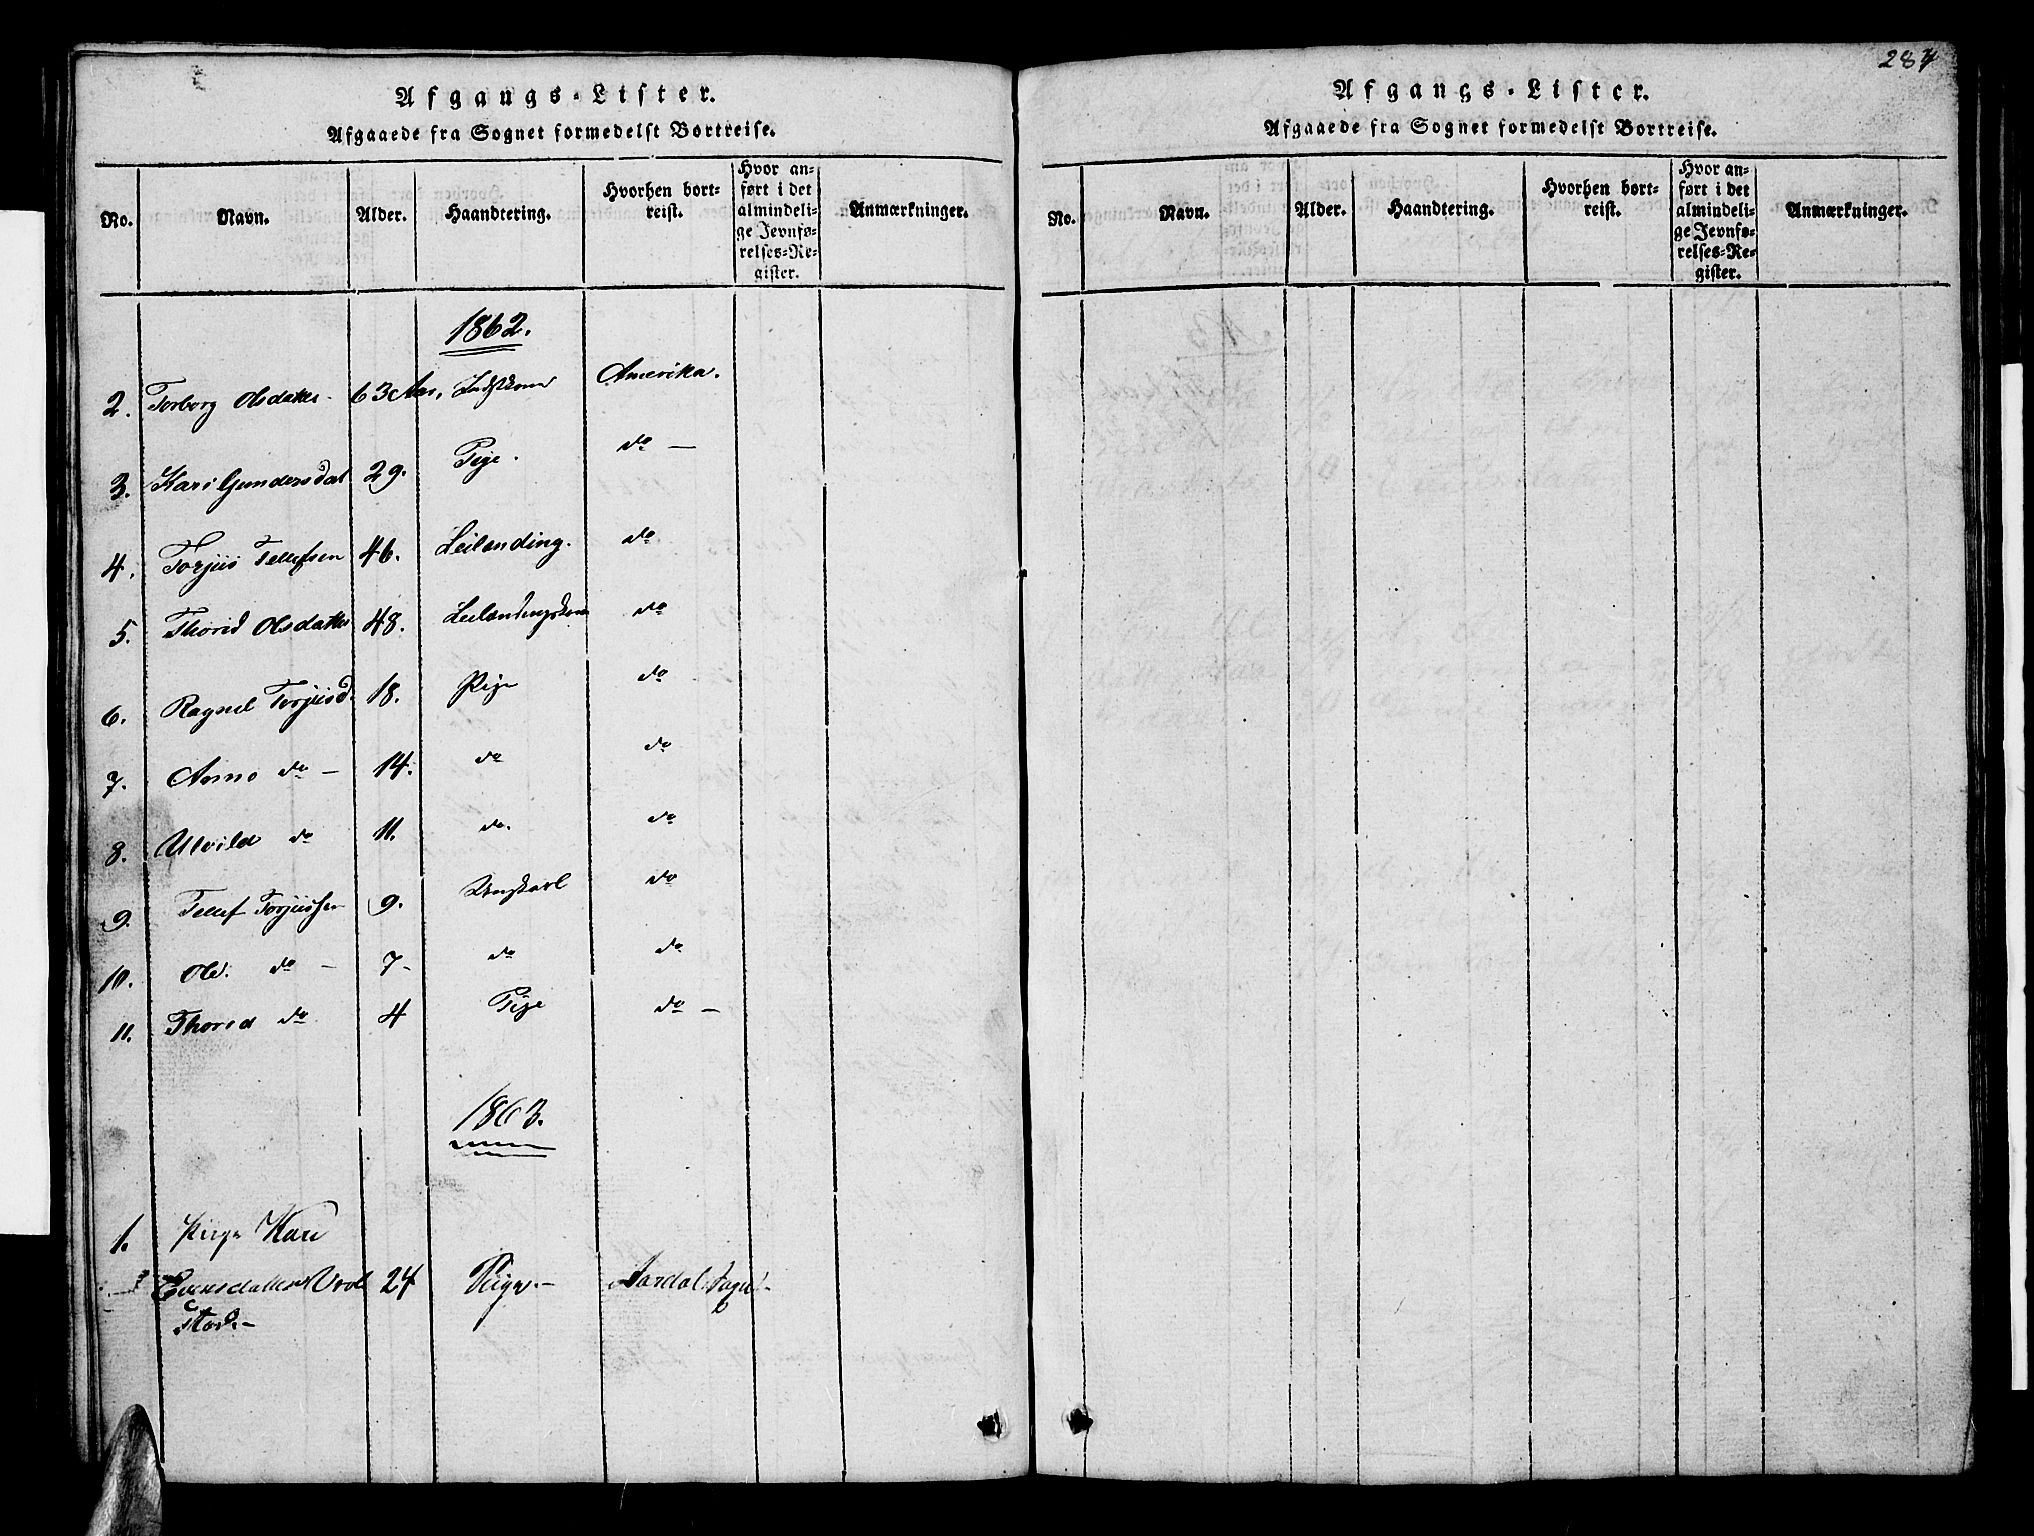 Afgangs-Lister.
Afgaaede fra Sognet formedelst Bortreise.
No. Navn. Alder. Haandtering. Hvorhen bortreist. Hvor anført i det almindelige Jevnførelses-Register. Anmærkninger.
1862.
2. Torborg Olsdatter 63 Aar, Amerika.
3. Kari Gundersdat 29. Pige. do —
4. Torjus Tellefsen 46. Leilænding. do
5. Thorid Olsdatter 48. Leilændingskone do
6. Ragnil Torjusd. 18. Pige do
7. do — 14. do do
8. do 11. do. do
9. Tellef Torjussen 9. Ungkarl do
10. Ole. do — 7- do do
11. Thorid do 4 Pige do —
1863.
1. Pige Kari
24 Pige.- Aardal Sogn-
284
Afgangs-Lister.
Afgaaede fra Sognet formedelst Bortreise.
No. Navn. Alder. Haandtering. Hvorhen bortreist. Hvor anført i det almindelige Jevnførelses-Register. Anmærkninger.